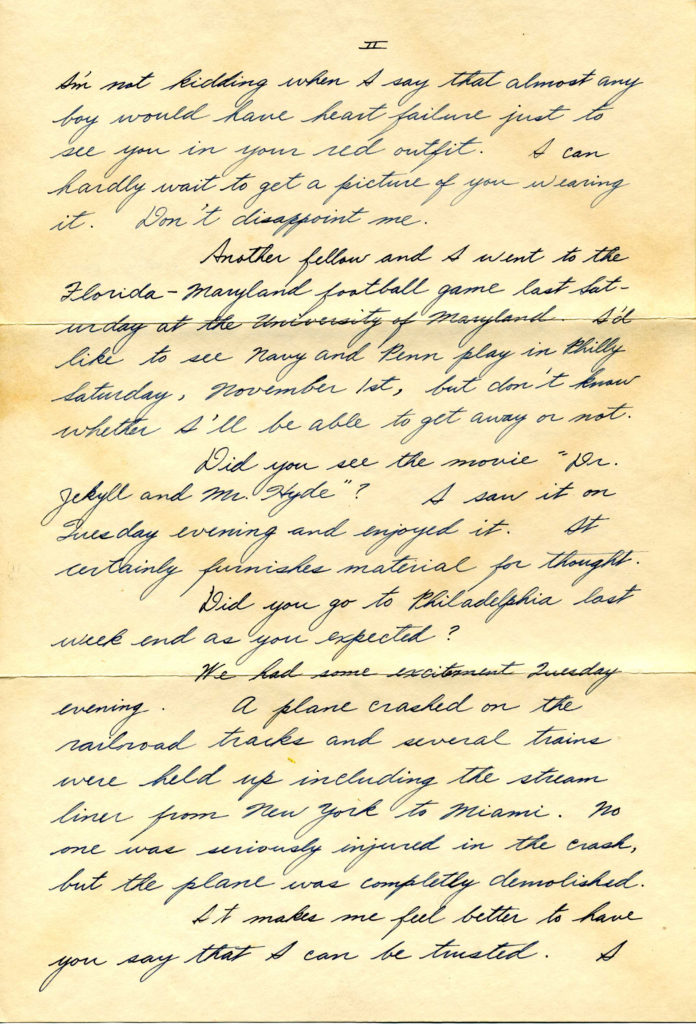 II
I'm not kidding when I say that almost any
boy would have heart failure just to
see you in your red outfit. I can
hardly wait to get a picture of you wearing
it. Don't disappoint me.
Another fellow and I went to the
Florida-Maryland football game last Sat-
urday at the University of Maryland. I'd
like to see Navy and Penn play in Philly
Saturday, November 1st, but don't know
whether I'll be able to get away or not.
Did you see the movie "Dr.
Jekyll and Mr. Hyde"? I saw it on
Tuesday evening and enjoyed it. It
certainly furnishes material for thought.
Did you go to Philadelphia last
week end as you expected?
We had some excitement Tuesday
evening. A plane crashed on the
railroad tracks and several trains
were held up including the stream
liner from New York to Miami. No
one was seriously injured in the crash,
but the plane was completly demolished.
It makes me feel better to have
you say that I can be trusted. I